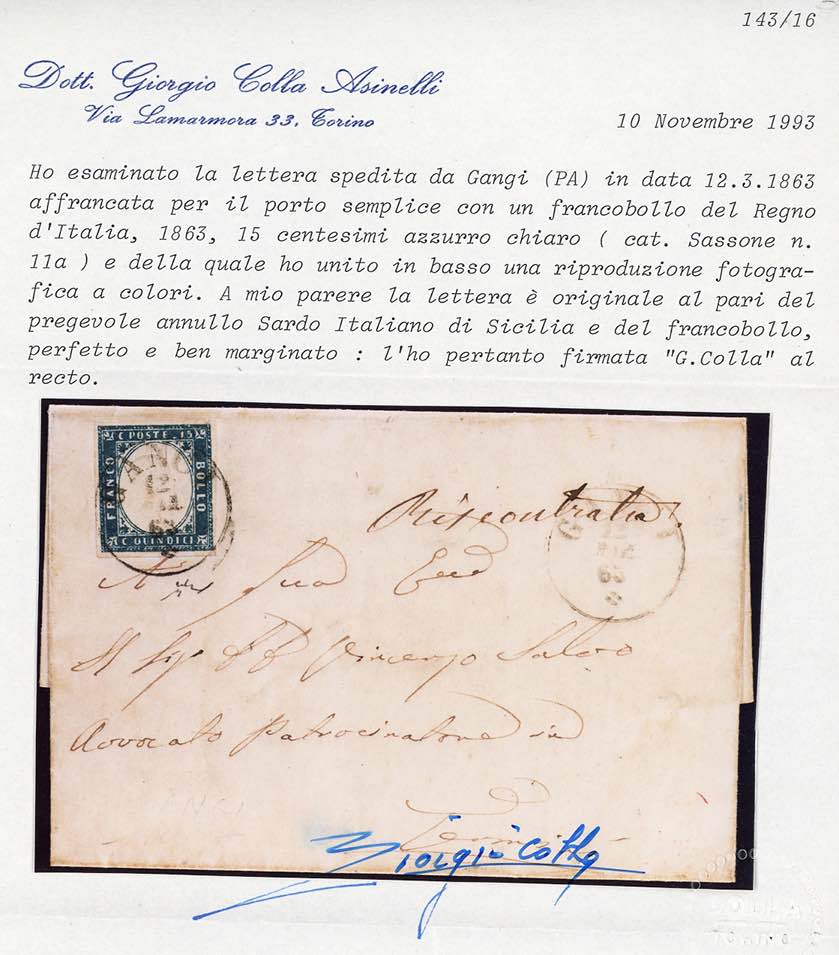 143/16
Dott. Giorgio Colla Asinelli
Via Lamarmora 33, Torino
10 Novembre 1993
Ho esaminato la lettera spedita da Gangi (PA) in data 12.3.1863
affrancata per il porto semplice con un francobollo del Regno
d'Italia, 1863, 15 centesimi azzurro chiaro ( cat. Sassone n.
11a ) e della quale ho unito in basso una riproduzione fotogra-
fica a colori. A mio parere la lettera è originale al pari del
pregevole annullo Sardo Italiano di Sicilia e del francobollo,
perfetto e ben marginato : l'ho pertanto firmata "G.Colla" al
recto.
C POSTE 15
FRANCO
BOLLO
C QUINDICI
63
Riscontrata
63
A Sua
Vincenzo
Avvocato Patrocinatore in
Giorgio Colla